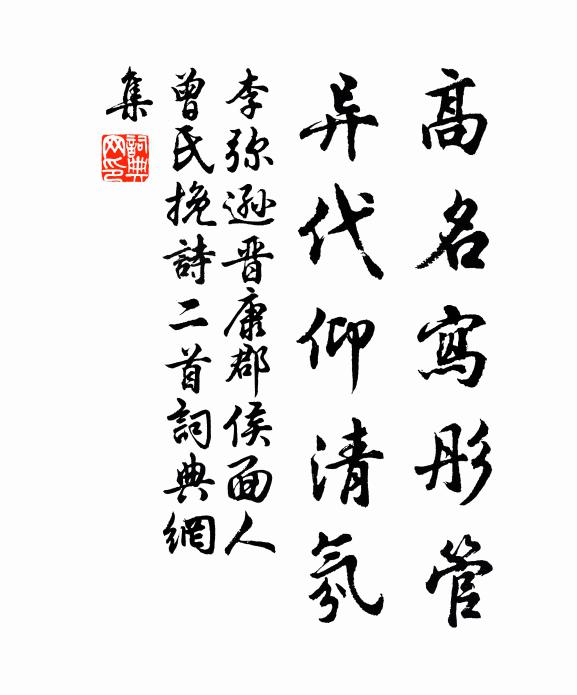 高名寫彤管
异代仰清氛
李弥遜晋康郡侯面人
曾氏挽詩二首詞典網
集
詞典
网印